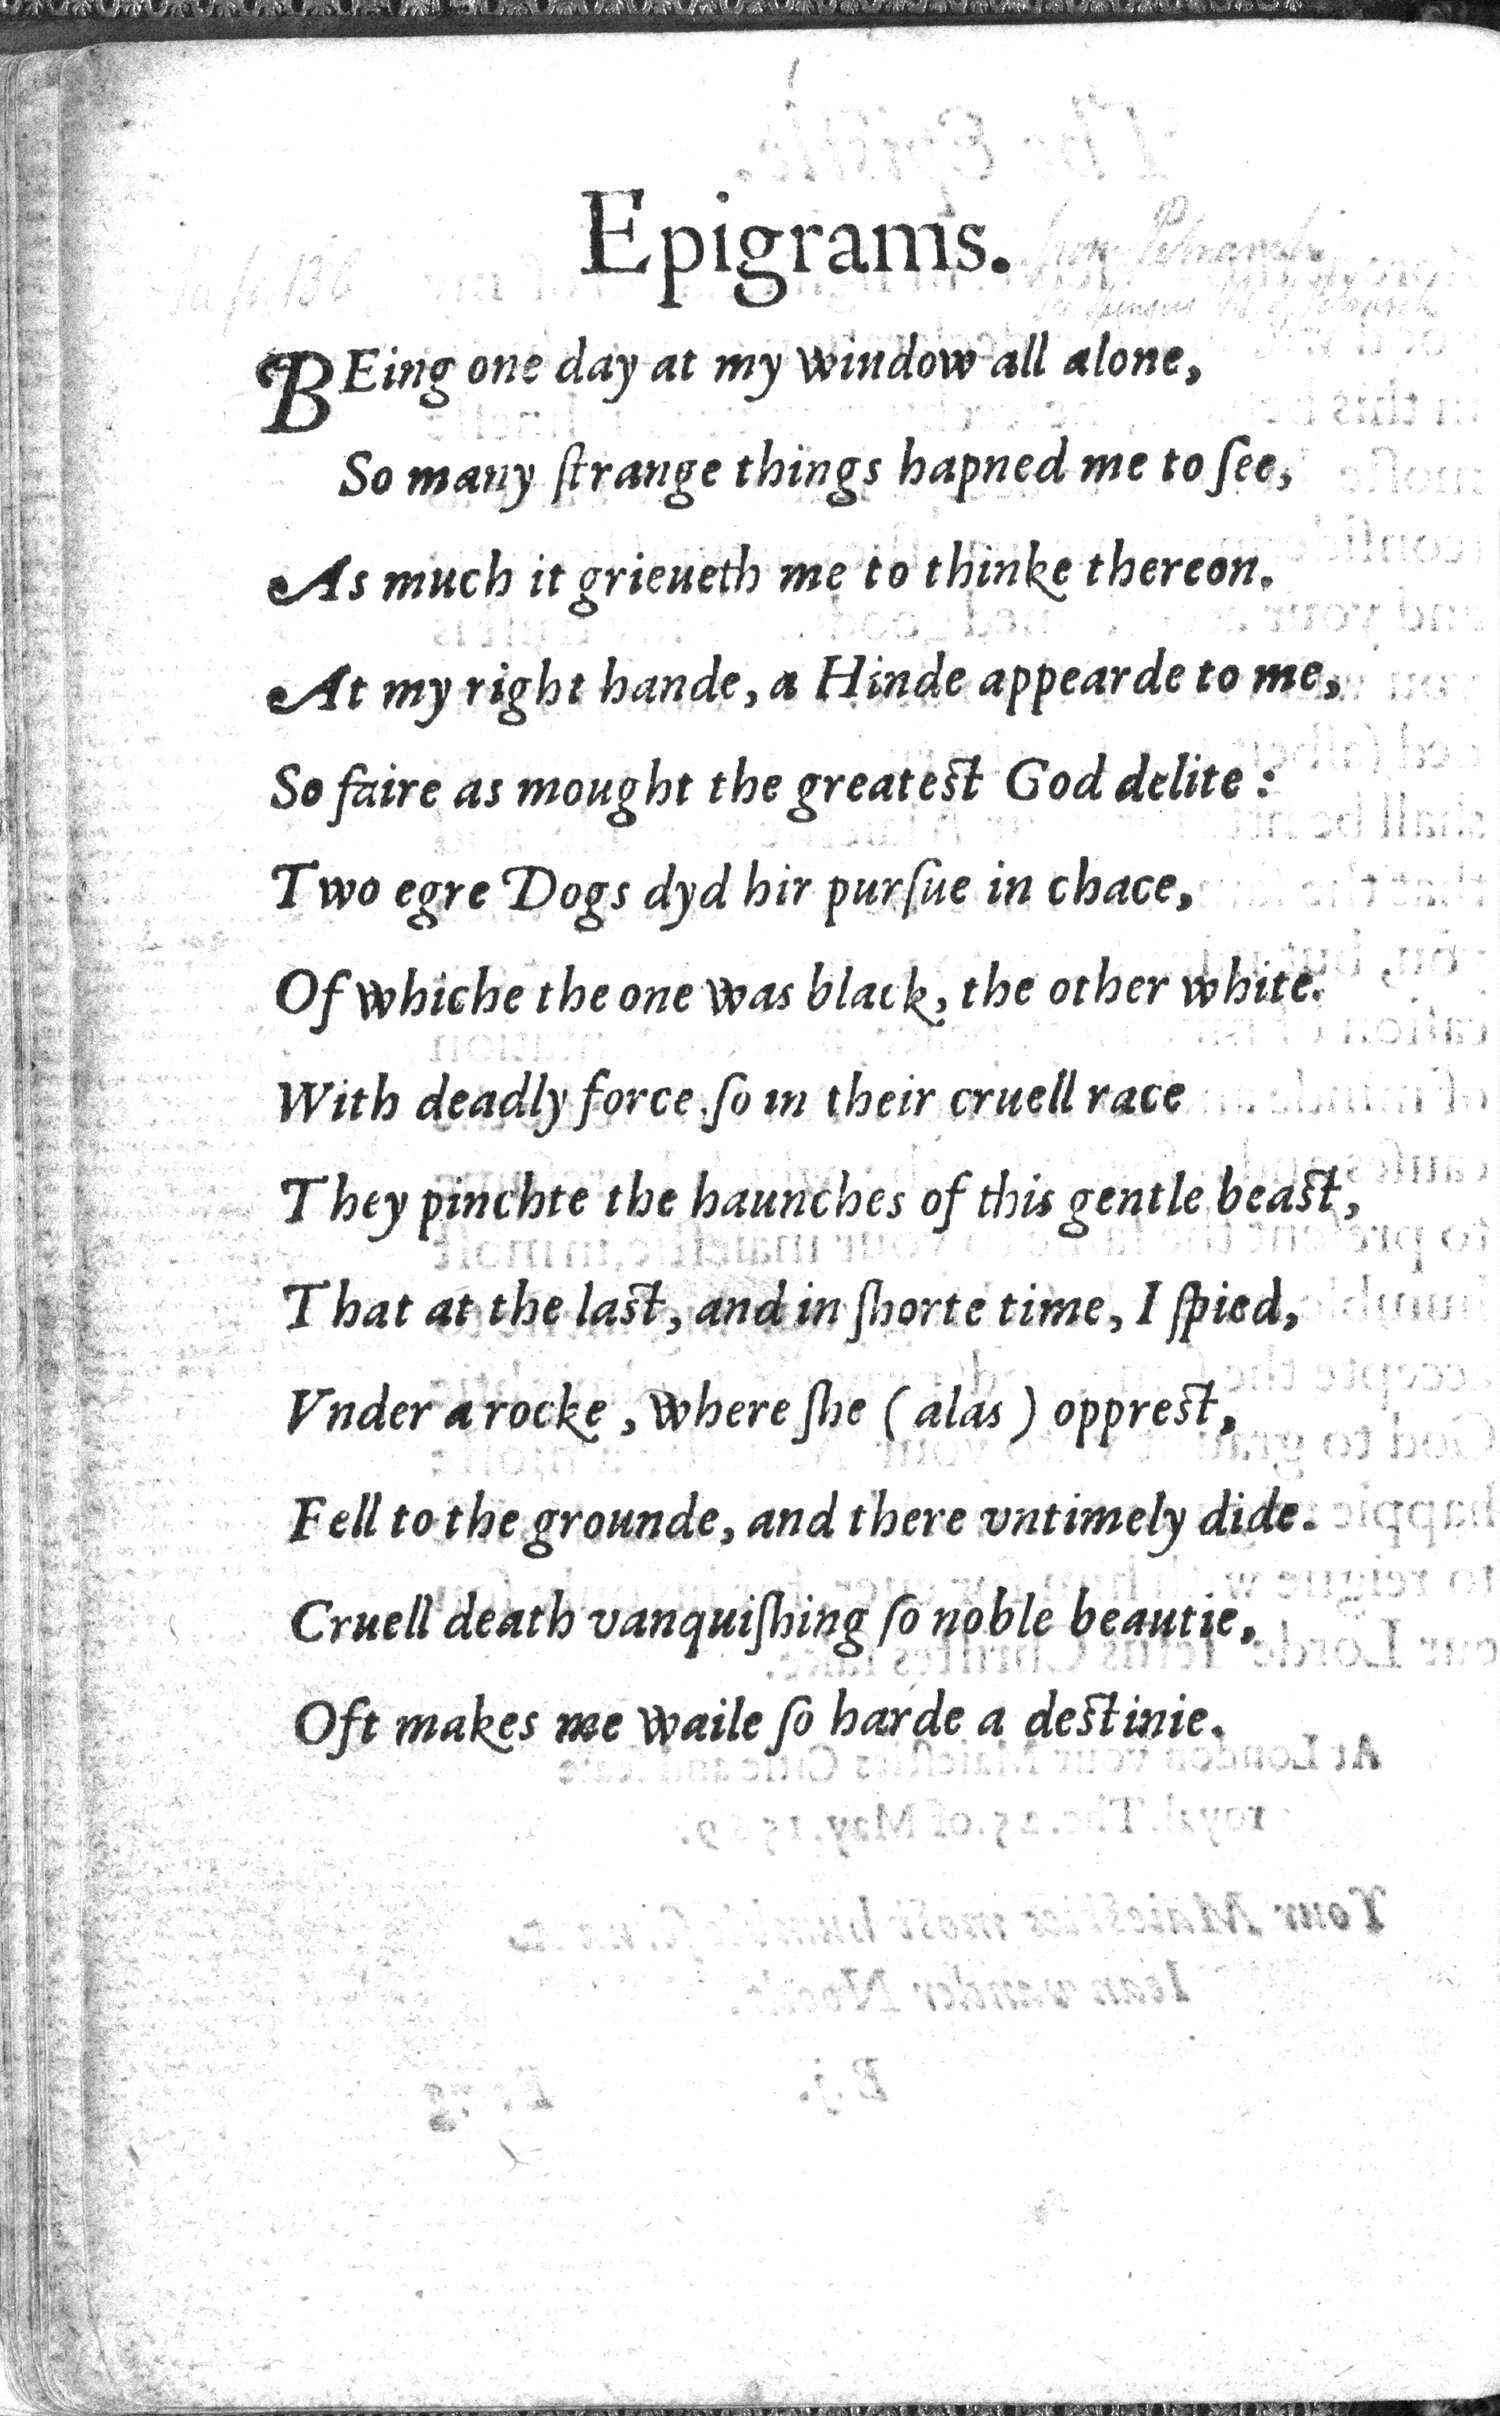 Epigrams.
BEing one day at my window all alone,
So many ſtrange things hapned me to ſee,
As much it grieueth me to thinke thereon.
At my right hande, a Hinde appearde to me,
So faire as mought the greatest God delite :
Two egre Dogs dyd hir purſue in chace,
Of whiche the one was black, the other white.
With deadly force ſo in their cruell race
They pinchte the haunches of this gentle beast,
That at the last, and in ſhorte time, I ſpied,
Vnder a rocke , where ſhe ( alas ) opprest,
Fell to the grounde, and there vntimely dide.
Cruell death vanquiſhing ſo noble beautie,
Oft makes me waile ſo harde a destinie.